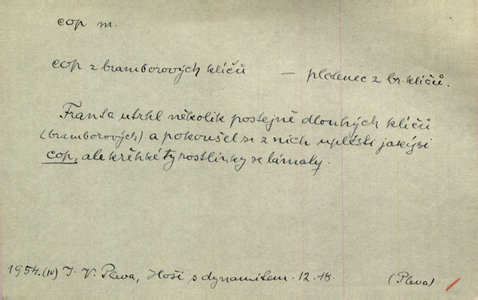 cop m.
cop z bramborových klíčů — pletenec z br. klíčů.
Franta utrhl několik postejně dlouhých klíčů
(bramborových) a pokoušel se z nich uplésti jakýsi
cop, ale křehké ty rostlinky se lámaly.
1954. (IV) J. V. Pleva, Hoši s dynamitem. 12. 18. (Pleva)